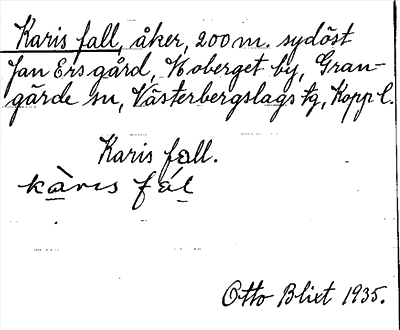 Karis fall, åker, 200 m. sydöst
Jan Ers gård, Noberget by, Gran-
gärde sn, Västerbergslags tg, Kopp l.
Karis fall.
kàrıs fál
Otto Blixt 1935.